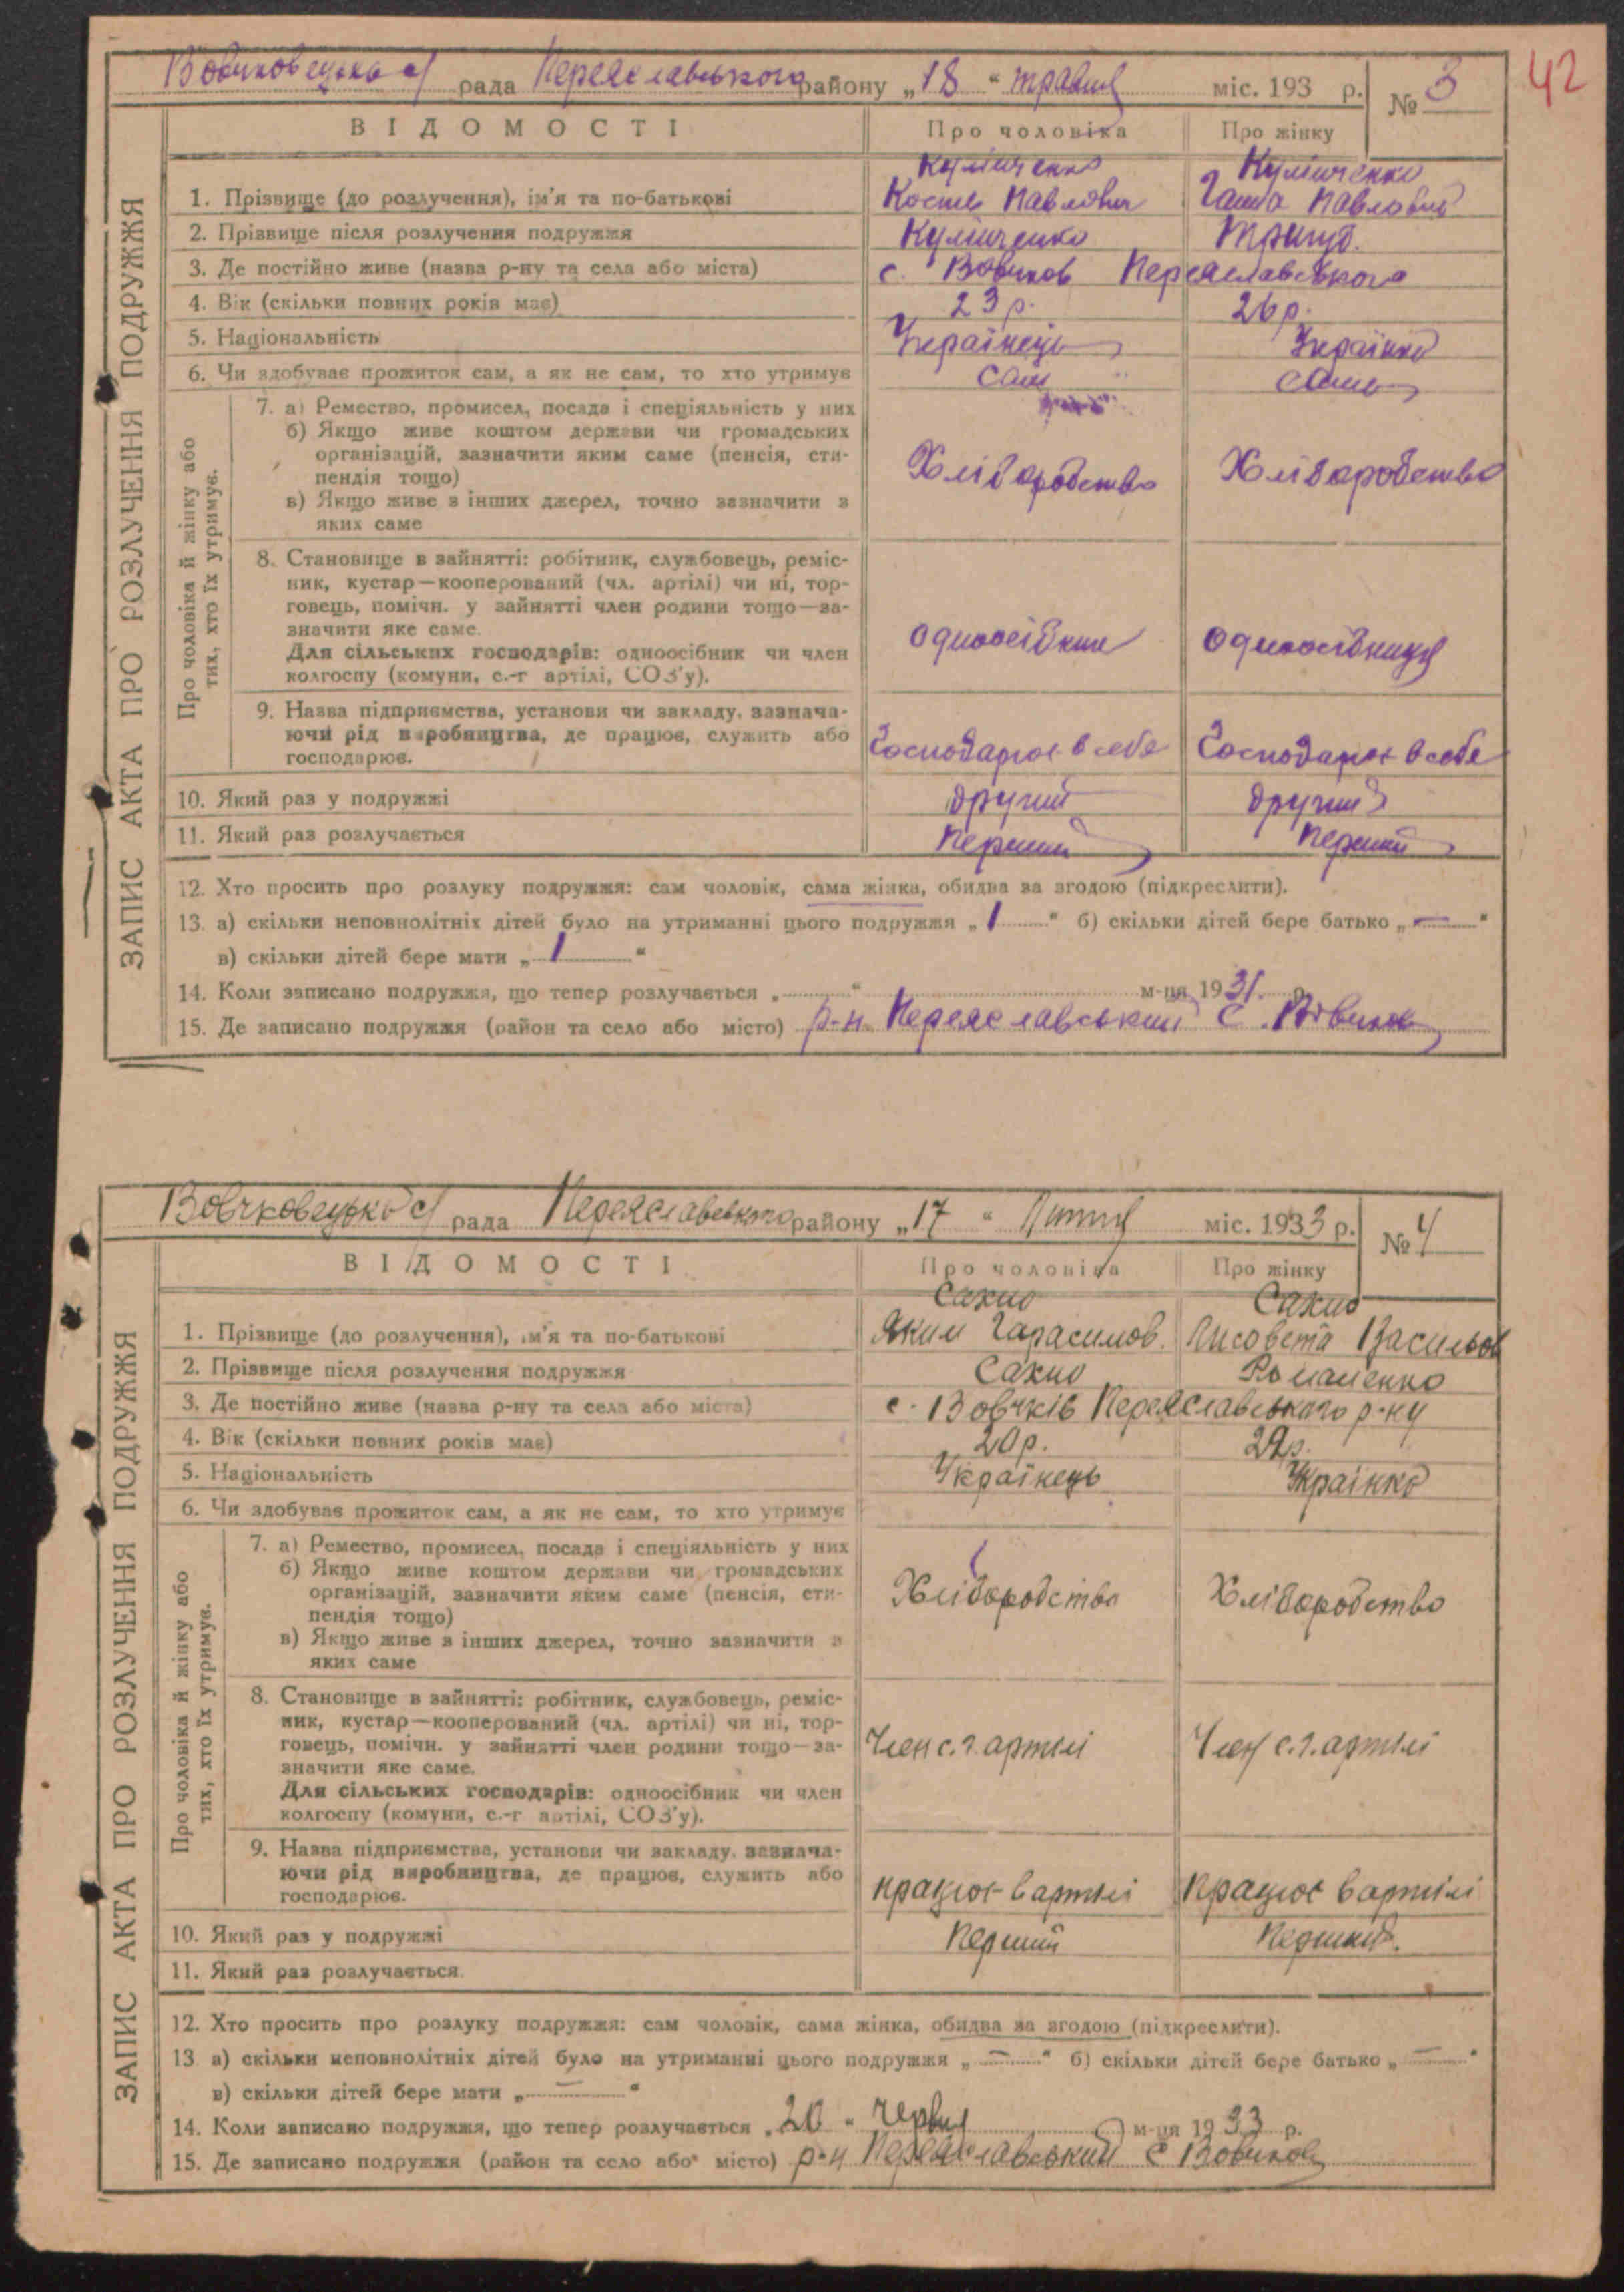 42
Вовчковецька с/ рада Переяславського району „18“ травня міс. 193 р. № 3
ВІДОМОСТІ Про чоловіка Про жінку
Куліиченко Куліиченко
1. Прізвище (до розлучення), ім'я та по-батькові Кость Павлович Ганна Павловна
2. Прізвище після розлучення подружжя
3. Де постійно живе (назва р-ну та села або міста) с. Вовчков Переяславського
4. Вік (скільки повних років має) 23 р. 26 р.
5. Національність Українець Українка
6. Чи здобуває прожиток сам, а як не сам, то хто утримує сам сама
7. а) Ремество, промисел, посада і спеціяльність у них
б) Якщо живе коштом держави чи громадських
організацій, зазначити яким саме (пенсія, сти-
пендія тощо) Хліборобство Хліборобство
в) Якщо живе з інших джерел, точно зазначити з
яких саме
8. Становище в зайнятті: робітник, службовець, реміс-
ник, кустар—кооперований (чл. артілі) чи ні, тор-
говець, помічн. у зайнятті член родини тощо—за-
значити яке саме. одноосібник одноосібниця
Для сільських господарів: одноосібник чи член
колгоспу (комуни, с.-г артілі, СОЗ'у).
9. Назва підприємства, установи чи закладу, зазнача-
ючи рід виробництва, де працює, служить або Господарює в себе Господарює в себе
господарює.
10. Який раз у подружжі другий другий
11. Який раз розлучається Перший Перший
12. Хто просить про розлуку подружжя: сам чоловік, сама жінка, обидва за згодою (підкреслити).
13. а) скільки неповнолітніх дітей було на утриманні цього подружжя „1“ б) скільки дітей бере батько „—“
в) скільки дітей бере мати „1“
14. Коли записано подружжя, що тепер розлучається „ “ м-ця 1931. р.
15. Де записано подружжя (район та село або місто) р-н Переяславський с. Вовчков
ЗАПИС АКТА ПРО РОЗЛУЧЕННЯ ПОДРУЖЖЯ
Про чоловіка й жінку або
тих, хто їх утримує.
Вовчковецька с/ рада Переяславського району „17“ Липня міс. 1933 р. № 4
ВІДОМОСТІ Про чоловіка Про жінку
Сахно Сахно
1. Прізвище (до розлучення), ім'я та по-батькові Яким Гарасимов. Лисовета Васильов
2. Прізвище після розлучення подружжя Сахно Романенко
3. Де постійно живе (назва р-ну та села або міста) с. Вовчків Переяславського р-ну
4. Вік (скільки повних років має) 20 р.
5. Національність Українець Українка
6. Чи здобуває прожиток сам, а як не сам, то хто утримує
7. а) Ремество, промисел, посада і спеціяльність у них
б) Якщо живе коштом держави чи громадських
організацій, зазначити яким саме (пенсія, сти- Хліборобство Хліборобство
пендія тощо)
в) Якщо живе з інших джерел, точно зазначити з
яких саме
8. Становище в зайнятті: робітник, службовець, реміс-
ник, кустар—кооперований (чл. артілі) чи ні, тор-
говець, помічн. у зайнятті член родини тощо—за- Член с.г. артілі Член с.г. артілі
значити яке саме.
Для сільських господарів: одноосібник чи член
колгоспу (комуни, с.-г артілі, СОЗ'у).
9. Назва підприємства, установи чи закладу, зазнача-
ючи рід виробництва, де працює, служить або працює в артілі працює в артілі
господарює.
10. Який раз у подружжі Перший Перший.
11. Який раз розлучається
12. Хто просить про розлуку подружжя: сам чоловік, сама жінка, обидва за згодою (підкреслити).
13 а) скільки неповнолітніх дітей було на утриманні цього подружжя „—“ б) скільки дітей бере батько „—“
в) скільки дітей бере мати „—“
14. Коли записано подружжя, що тепер розлучається „20“ червня м-ця 1933 р.
15. Де записано подружжя (район та село або місто) р-н Переяславський с Вовчков
ЗАПИС АКТА ПРО РОЗЛУЧЕННЯ ПОДРУЖЖЯ
Про чоловіка й жінку або
тих, хто їх утримує.